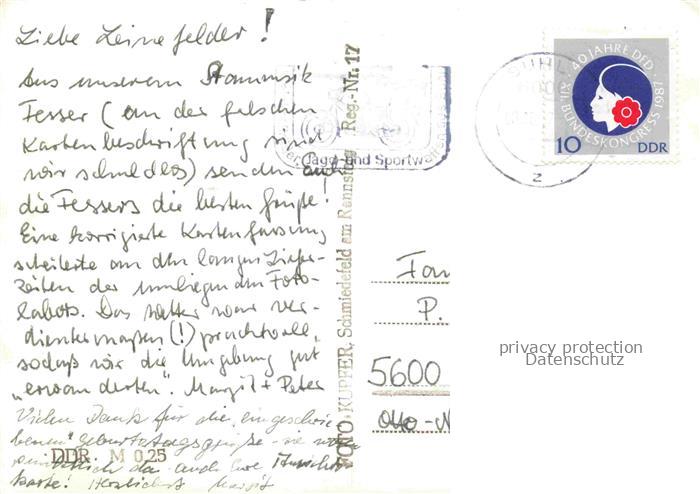 Liebe Leinefelder!
Aus unserem Stammsitz
Fesser (an der falschen
Kartenbeschriftung sind
wir schuldlos) senden auch
die Fessers die besten Grüße!
Eine korrigierte Kartenfassung
scheiterte an den langen Liefer-
zeiten der umliegenden Foto-
labors. Das Wetter war ver-
dientermaßen (!) prachtvoll,
sodaß wir die Umgebung gut
"erwanderten". Margit + Peter
Vielen Dank für die eingeschrie-
benen Geburtstagsgrüße - sie
da auch Eure Ansichts-
karte! Herzlichst Margit
DDR M 0,25
FOTO-KUPFER, Schmiedefeld am Rennsteig Reg.-Nr. 17
Jagd- und Sportwaffen
SUHL
z
40 JAHRE DFD
XII. BUNDESKONGRESS 1987
10 DDR
Fam
P.
5600
Otto-N
privacy protection
Datenschutz